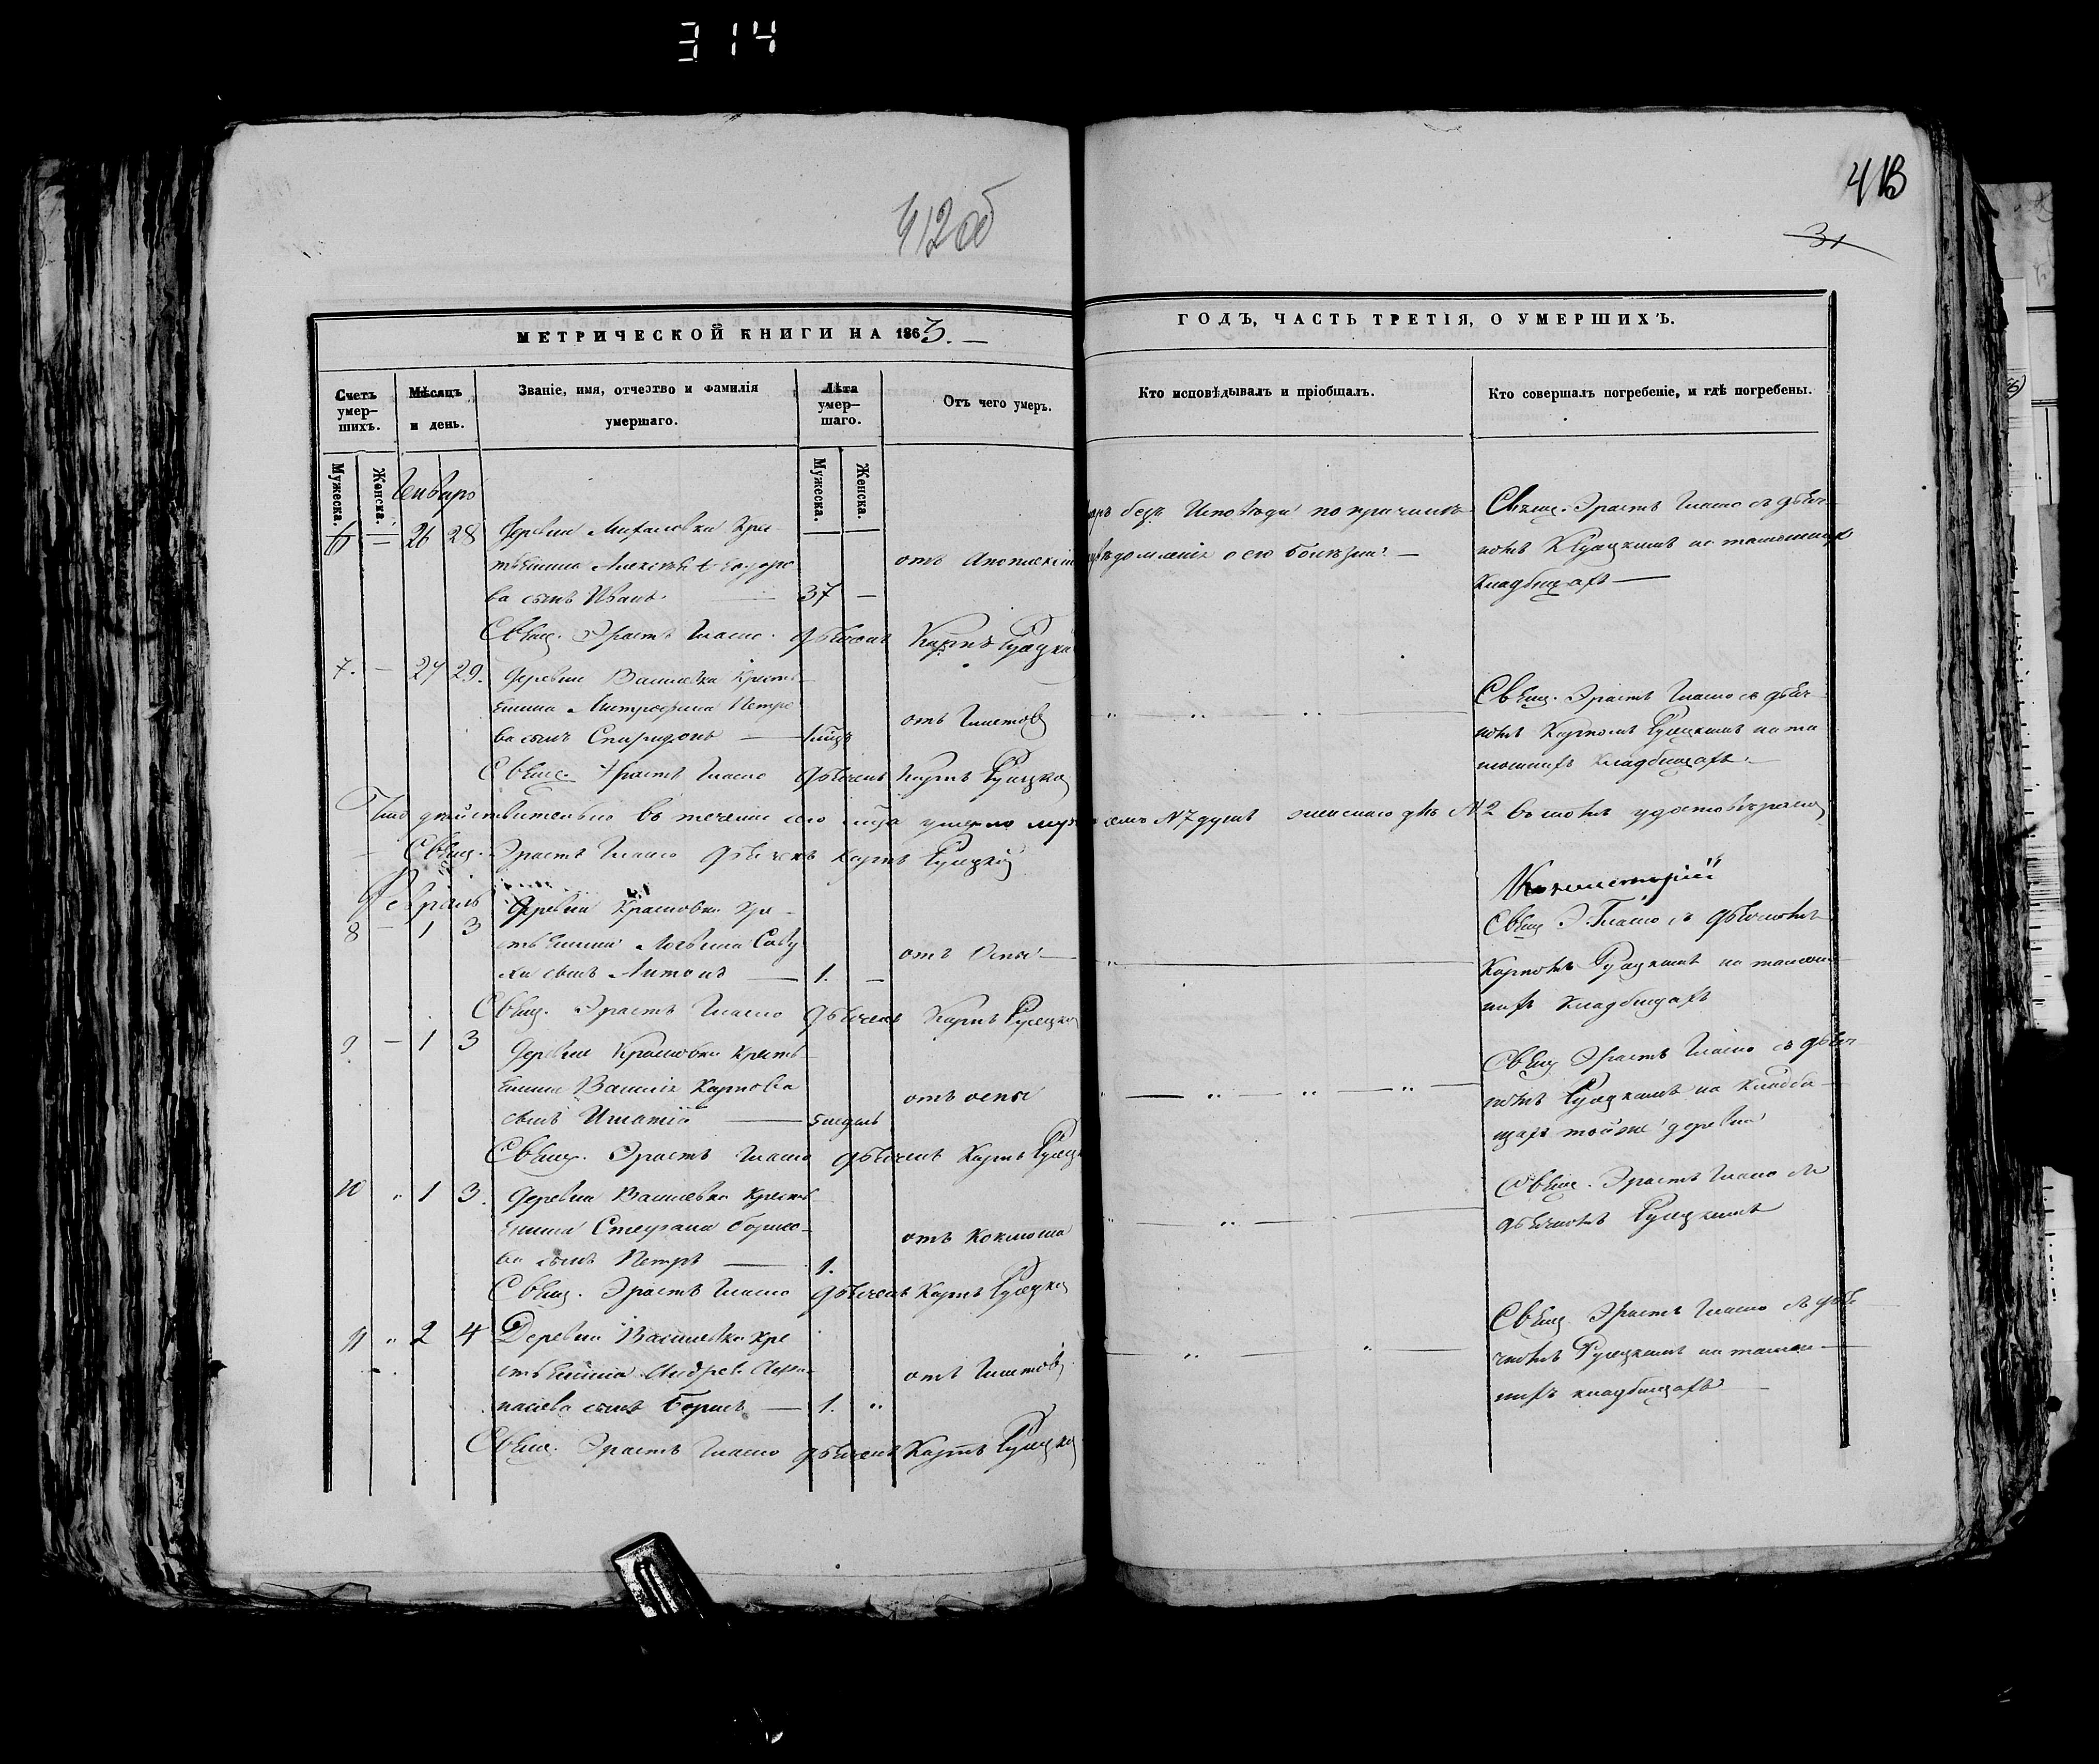 314
412 об
413
31
МЕТРИЧЕСКОЙ КНИГИ НА 1863. —
ГОДЪ, ЧАСТЬ ТРЕТІЯ, О УМЕРШИХЪ.
Счетъ умер–шихъ.
Мѣсяцъ и день.
Званіе, имя, отчество и фамилія умершаго.
Лѣта умер–шаго.
Отъ чего умеръ.
Кто исповѣдывалъ и пріобщалъ.
Кто совершалъ погребеніе, и гдѣ погребены.
Мужеска.
Женска.
Мужеска.
Женска.
Январь
6 — 26 28 Деревни Михаловки Кре-
стьянина Алексѣя
ва сынъ Иванъ 37 —
отъ
безъ Исповѣди по причинѣ
о его болѣзни —
Свящ. Эрастъ съ дьяч-
комъ К Руцкимъ на тамошнемъ
кладбищѣ —
Свящ. Эрастъ дьячекъ Карпъ Руцкій
7. — 27 29. Деревни Василевки Кресть-
янина Митрофана Петро
ва сынъ Спиридонъ — 1
отъ Глистовъ
Свящ. Эрастъ съ дьяч-
комъ Карпомъ Руцкимъ на та
мошнемъ кладбищѣ —
Свящ. Эрастъ дьячекъ Карпъ Руцкій
Что дѣйствительно въ теченіи сего м-ца умерло муж N 7 душъ женскаго N 2 въ томъ удостовѣряемъ
Свящ. Эрастъ дьячекъ Карпъ Руцкій
Консисторіи
Февраль
8 — 1 3 Деревни Крашовки Кре-
стьянина Логвина Саву
ка сынъ Антонъ — 1. —
отъ Оспы —
Свящ Э. съ дьячкомъ
Карпомъ Руцкимъ на тамош-
немъ кладбищѣ
Свящ. Эрастъ дьячекъ Карпъ Руцкій
9. — 1 3 Деревни Крашовки Кресть-
янина Василія Карпова
сынъ Игнатій — 5 недѣль
отъ оспы
Свящ Эрастъ съ дьяч-
комъ Руцкимъ на кладби-
щѣ тойже деревни
Свящ. Эрастъ дьячекъ Карпъ Руцкій
10 „ 1 3. Деревни Василевки Кресть
янина Стефана Борисо-
ва сынъ Петръ — 1.
отъ Коклюша
Свящ. Эрастъ съ
дьячкомъ Руцкимъ
Свящ. Эрастъ дьячекъ Карпъ Руцкій
11 „ 2 4 Деревни Василевки Кре
стьянина Андрея Афа-
насіева сынъ Борисъ — 1. „
отъ Глистовъ
Свящ Эрастъ съ дья
чкомъ Руцкимъ на тамош-
немъ кладбищѣ —
Свящ. Эрастъ дьячекъ Карпъ Руцкій